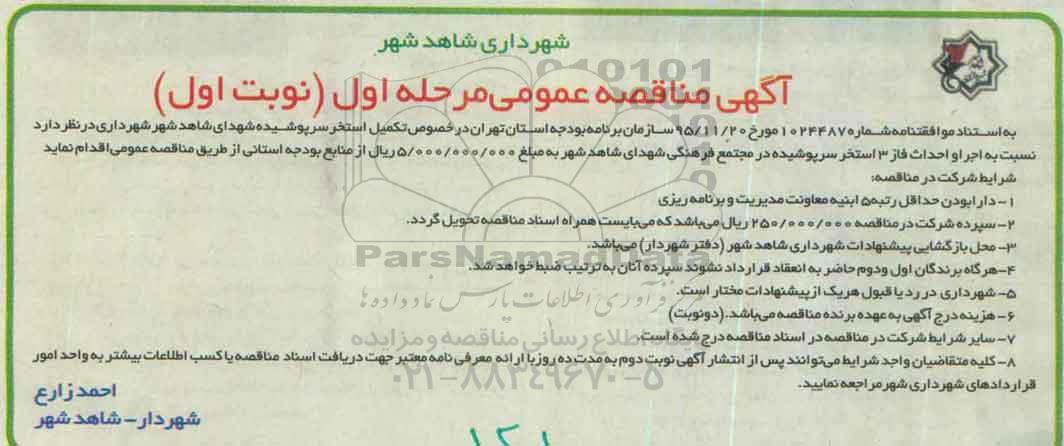 شهرداری شاهد شهر
آگهی مناقصه عمومی مرحله اول (نوبت اول)
به استناد موافقتنامه شماره ۱۰۲۴۴۸۷ مورخ ۹۵/۱۱/۲۰ سازمان برنامه بودجه استان تهران در خصوص تکمیل استخر سرپوشیده شهدای شاهد شهر شهرداری در نظر دارد
نسبت به اجرا و احداث فاز ۳ استخر سرپوشیده در مجتمع فرهنگی شهدای شاهد شهر به مبلغ ۵/۰۰۰/۰۰۰/۰۰۰ ریال از منابع بودجه استانی از طریق مناقصه عمومی اقدام نماید
شرایط شرکت در مناقصه:
۱- دارا بودن حداقل رتبه ۵ ابنیه معاونت مدیریت و برنامه ریزی
۲- سپرده شرکت در مناقصه ۲۵۰/۰۰۰/۰۰۰ ریال می‌باشد که می‌بایست همراه اسناد مناقصه تحویل گردد.
۳- محل بازگشایی پیشنهادات شهرداری شاهد شهر (دفتر شهردار) می‌باشد.
ParsNamadData
۴- هرگاه برندگان اول و دوم حاضر به انعقاد قرارداد نشوند سپرده آنان به ترتیب ضبط خواهد شد.
۵- شهرداری در رد یا قبول هریک از پیشنهادات مختار است.
مرکز فرآوری اطلاعات پارس نماد داده ها
۶- هزینه درج آگهی به عهده برنده مناقصه می‌باشد. (دو نوبت)
۷- سایر شرایط شرکت در مناقصه در اسناد مناقصه درج شده است.
پایگاه اطلاع رسانی مناقصه و مزایده
۸- کلیه متقاضیان واجد شرایط می‌توانند پس از انتشار آگهی نوبت دوم به مدت ده روز با ارائه معرفی نامه معتبر جهت دریافت اسناد مناقصه یا کسب اطلاعات بیشتر به واحد امور
۰۲۱-۸۸۳۴۹۶۷۰-۵
قراردادهای شهرداری شهر مراجعه نمایید.
احمد زارع
شهردار - شاهد شهر